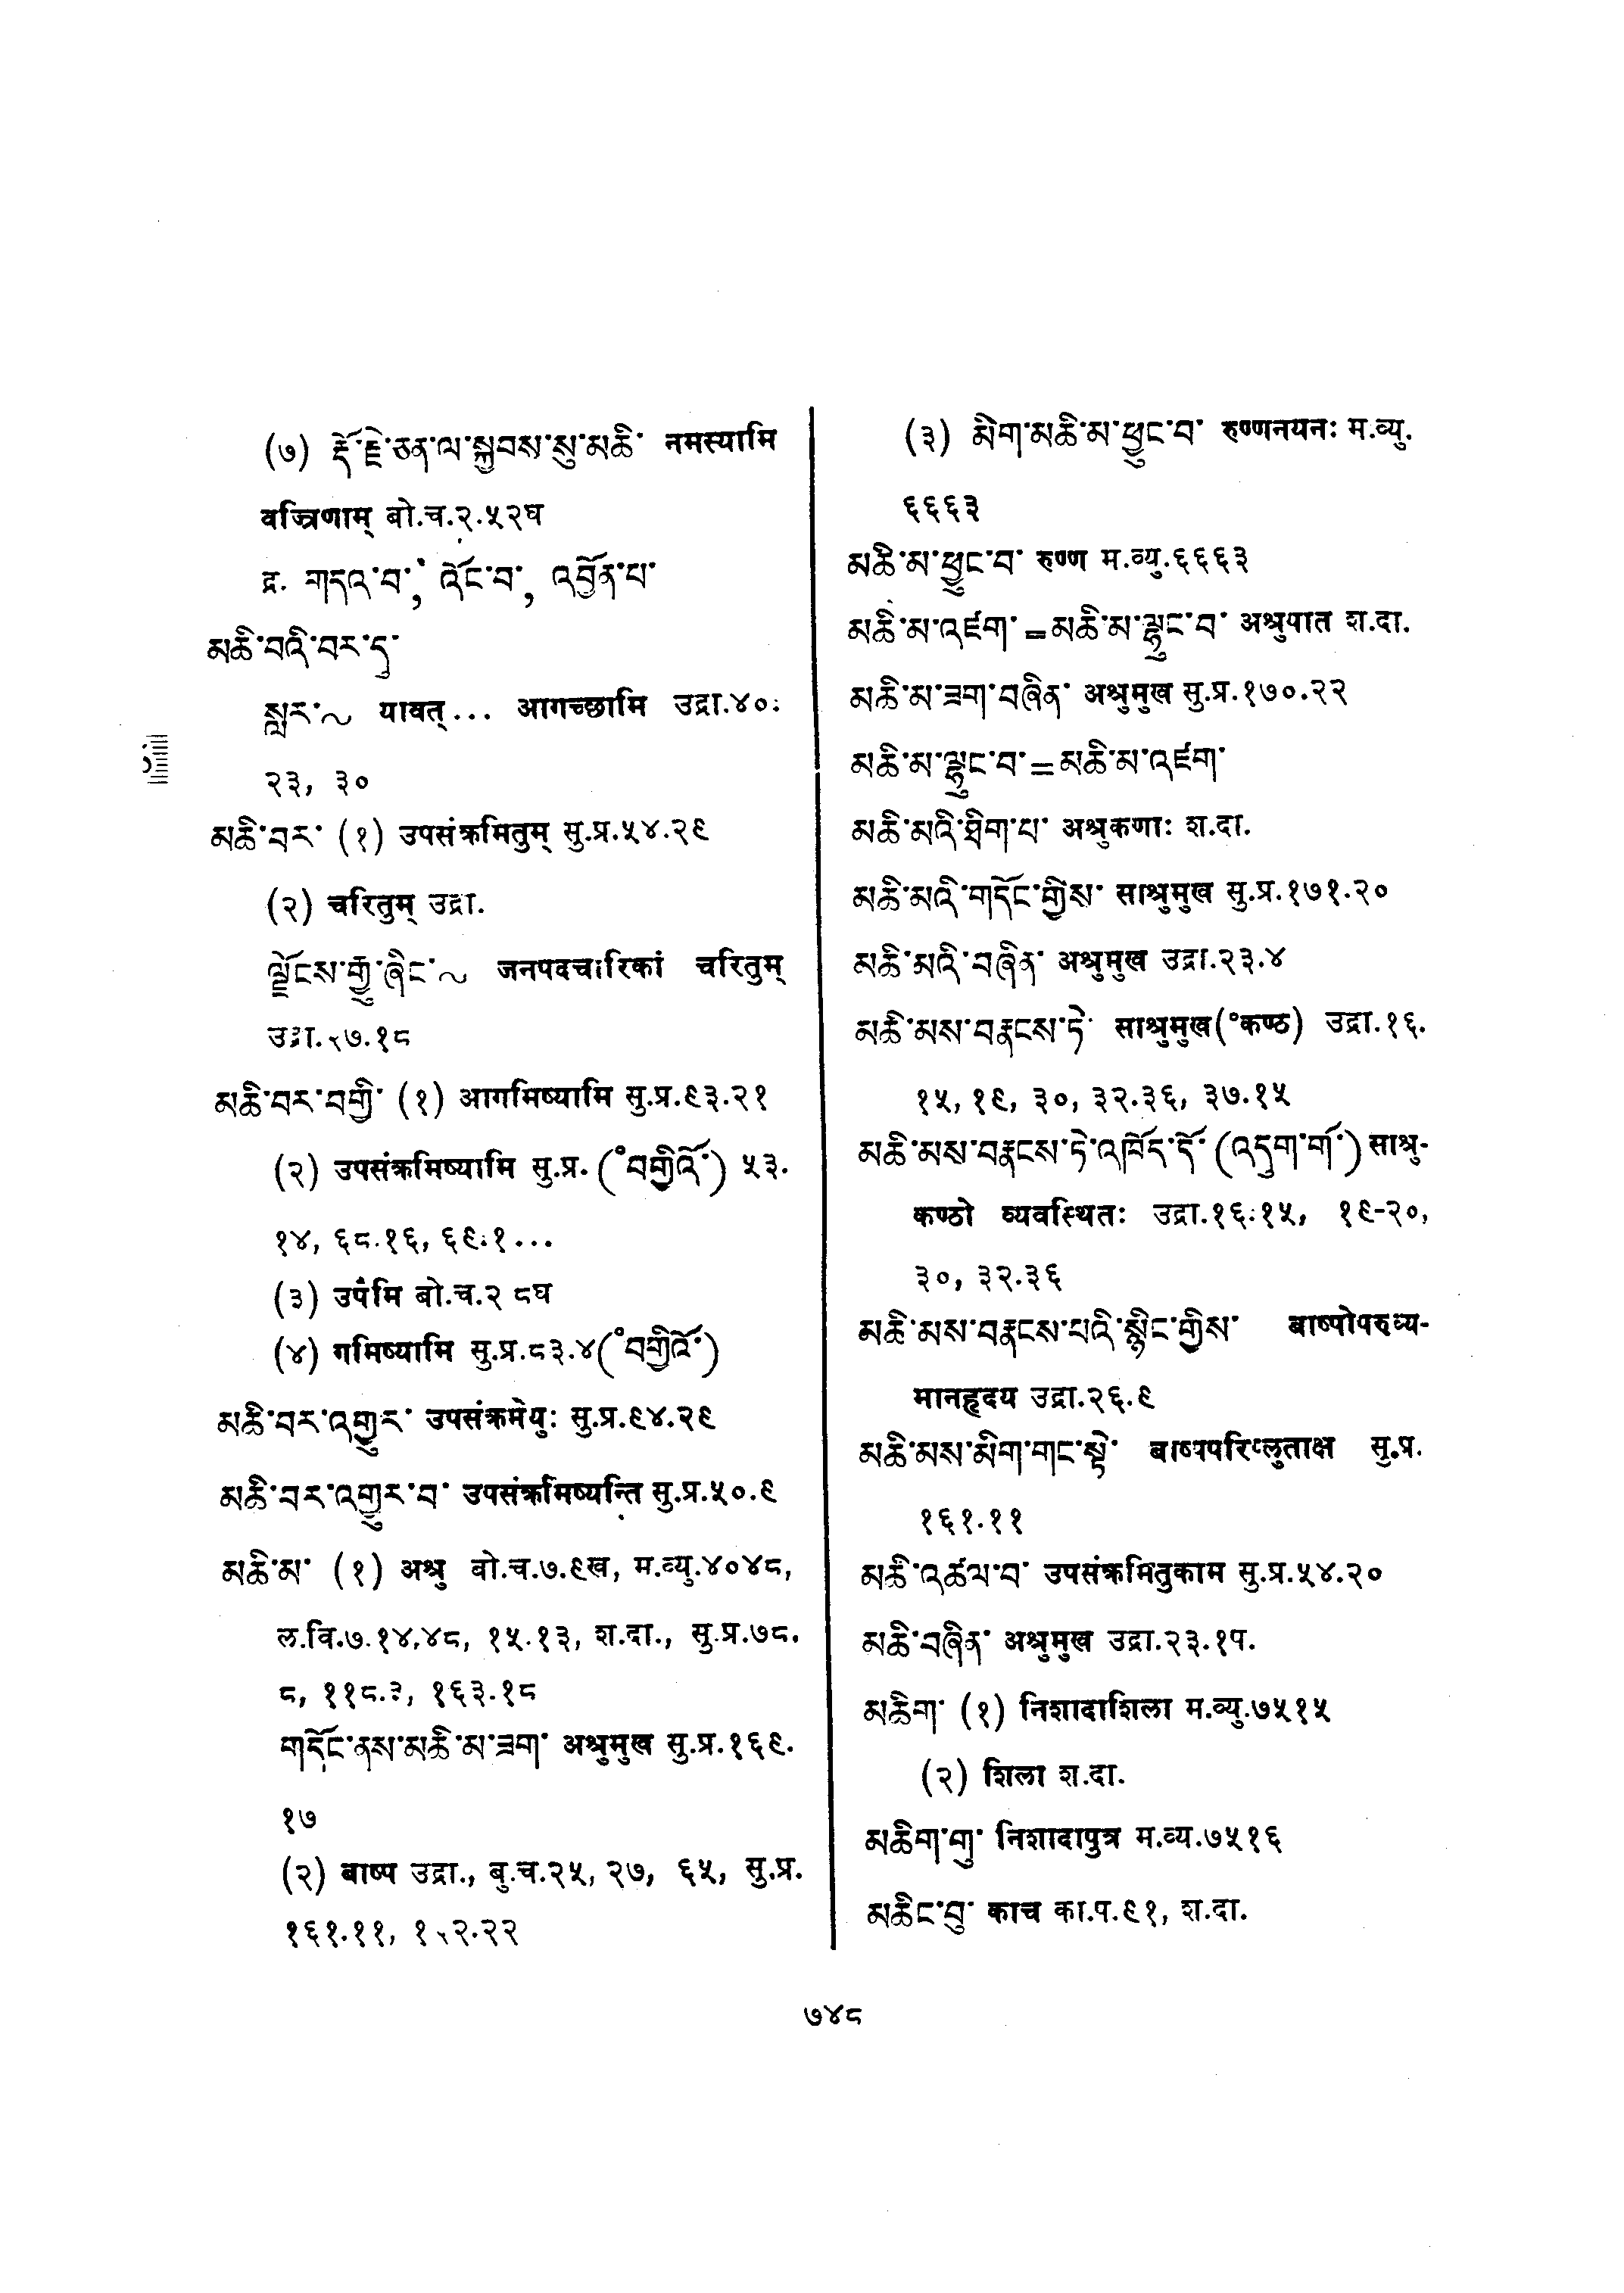 (७) རྡོ་རྗེ་ཅན་ལ་སྐྱབས་སུ་མཆི་ नमस्यामि
वज्रिणाम् बो.च.२.५२घ
द्र. གདའ་བ་, འོང་བ་, འབྱོན་པ་
མཆི་བའི་བར་དུ་
སླར་~ यावत्... आगच्छामि उद्रा.४०.
२३, ३०
མཆི་བར་ (१) उपसंक्रमितुम् सु.प्र.५४.२९
(२) चरितुम् उद्रा.
ལྗོངས་རྒྱུ་ཞིང་~ जनपदचारिकां चरितुम्
उद्रा. ७.१८
མཆི་བར་བགྱི་ (१) आगमिष्यामि सु.प्र.९३.२१
(२) उपसंक्रमिष्यामि सु.प्र. (°བགྱིའོ་) ५३.
१४, ६८.१६, ६९.१...
(३) उपैमि बो.च.२ ८घ
(४) गमिष्यामि सु.प्र.८३.४(°བགྱིའོ་)
མཆི་བར་འགྱུར་ उपसंक्रमेयुः सु.प्र.९४.२९
མཆི་བར་འགྱུར་བ་ उपसंक्रमिष्यन्ति सु.प्र.५०.९
མཆི་མ་ (१) अश्रु बो.च.७.९ख, म.व्यु.४०४८,
ल.वि.७.१४,४८, १५.१३, श.दा., सु.प्र.७८.
८, ११८.३, १६३.१८
གདོང་ནས་མཆི་མ་ཟག་ अश्रुमुख सु.प्र.१६९.
१७
(२) बाष्प उद्रा., बु.च.२५, २७, ६५, सु.प्र.
१६१.११,
(३) མིག་མཆི་མ་ཕྱུང་བ་ रुण्णनयनः म.व्यु.
६६६३
མཆི་མ་ཕྱུང་བ་ रुण्ण म.व्यु.६६६३
མཆི་མ་འཛག་=མཆི་མ་ལྷུང་བ་ अश्रुपात श.दा.
མཆི་མ་ཟག་བཞིན་ अश्रुमुख सु.प्र.१७०.२२
མཆི་མ་ལྷུང་བ་=མཆི་མ་འཛག་
མཆི་མའི་ཐིག་པ་ अश्रुकणाः श.दा.
མཆི་མའི་གདོང་གྱིས་ साश्रुमुख सु.प्र.१७१.२०
མཆི་མའི་བཞིན་ अश्रुमुख उद्रा.२३.४
མཆི་མས་བརྣངས་ཏེ་ साश्रुमुख(°कण्ठ) उद्रा.१६.
१५, १९, ३०, ३२.३६, ३७.१५
མཆི་མས་བརྣངས་ཏེ་འཁོད་དོ་ (འདུག་གོ་) साश्रु-
कण्ठो व्यवस्थितः उद्रा.१६.१५, १९-२०,
३०, ३२.३६
མཆི་མས་བརྣངས་པའི་སྙིང་གྱིས་ बाष्पोपरुध्य-
मानहृदय उद्रा.२६.९
མཆི་མས་མིག་གང་སྟེ་ बाष्पपरिप्लुताक्ष सु.प्र.
१६१.११
མཆི་འཚལ་བ་ उपसंक्रमितुकाम सु.प्र.५४.२०
མཆི་བཞིན་ अश्रुमुख उद्रा.२३.१प.
མཆིག་ (१) निशादाशिला म.व्यु.७५१५
(२) शिला श.दा.
མཆིག་གུ་ निशादापुत्र म.व्य.७५१६
མཆིང་བུ་ काच का.प.९१, श.दा.
७४८